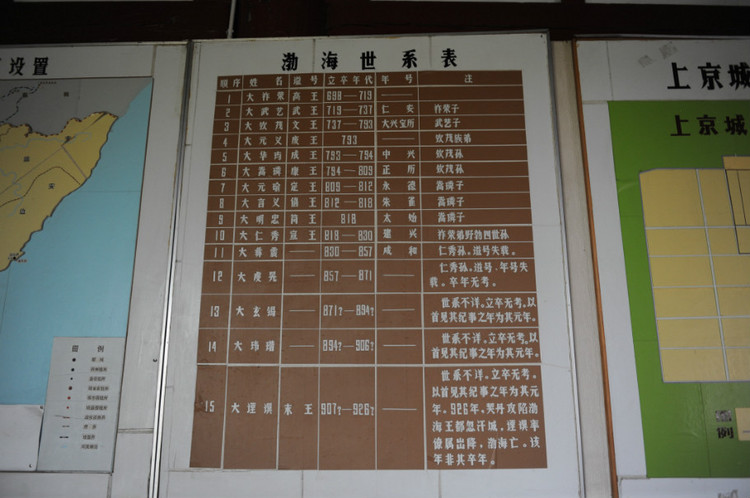 设置
渤海世系表
顺序 姓名 谥号 立卒年代 年号 注
1 大祚荣 高王 698—719 ——
2 大武艺 武王 719—737 仁安 祚荣子
3 大钦茂 文王 737—793 大兴宝历 武艺子
4 大元义 废王 793 —— 钦茂族弟
5 大华玙 成王 793—794 中兴 钦茂孙
6 大嵩璘 康王 794—809 正历 钦茂孙
7 大元瑜 定王 809—812 永德 嵩璘子
8 大言义 僖王 812—818 朱雀 嵩璘子
9 大明忠 简王 818 太始 嵩璘子
10 大仁秀 宣王 818—830 建兴 祚荣弟野勃四世孙
11 大彝震 —— 830—857 咸和 仁秀孙，谥号失载。
12 大虔晃 —— 857—871 —— 仁秀孙，谥号、年号失
载。卒年无考。
13 大玄锡 —— 871?—894? —— 世系不详。立卒无考，以
首见其纪事之年为其元年。
14 大玮瑎 —— 894?—906? —— 世系不详。立卒无考，以
首见其纪事之年为其元年。
15 大諲譔 末王 907?—926? —— 世系不详。立卒无考。
以首见其纪事之年为其元
年。926年，契丹攻陷渤
海王都忽汗城，諲譔率
僚属出降，渤海亡。该
年非其卒年。
图例
上京城
上京城
图例